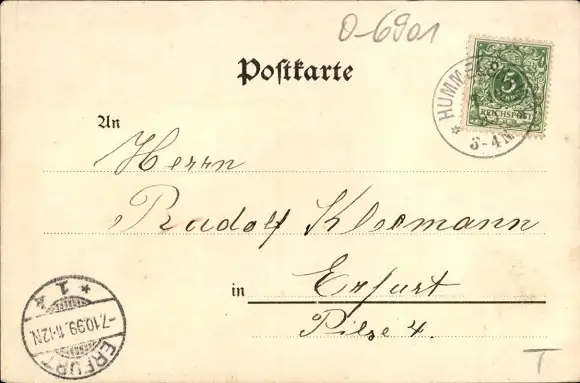 O-6901
Postkarte
HUMMELS
5
REICHSPOST
* 3-4N
An
Herrn
Rudolf Kleemann
in Erfurt
Pilse 4.
* 1 z
-7.10.99.11-12N.
ERFURT
T